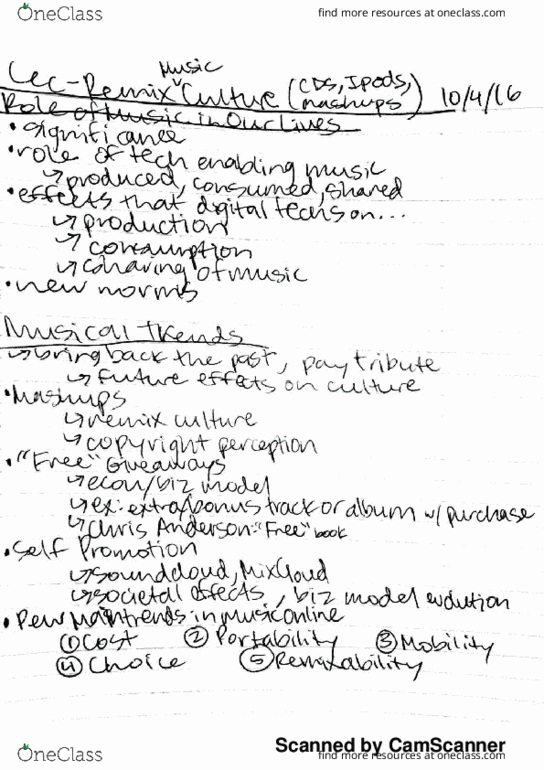 OneClass
find more resources at oneclass.com
Lec-Remix Music Culture (CDs, Ipods, mashups) 10/4/16
Role of Music in Our Lives
• significance
• role of tech enabling music
↳ produced, consumed, shared
• effects that digital techs on...
↳ production
↳ consumption
↳ sharing of music
• new norms
Musical Trends
↳ bring back the past, pay tribute
↳ future effects on culture
• Mashups
↳ remix culture
↳ copyright perception
• "Free" Giveaways
↳ econ/biz model
↳ ex: extra/bonus track or album w/ purchase
↳ Chris Anderson "Free" book
• Self Promotion
↳ soundcloud, MixCloud
↳ societal effects, biz model evolution
• Pew Main trends in music online
① Cost ② Portability ③ Mobility
④ Choice ⑤ Remixability
Scanned by CamScanner
OneClass
find more resources at oneclass.com